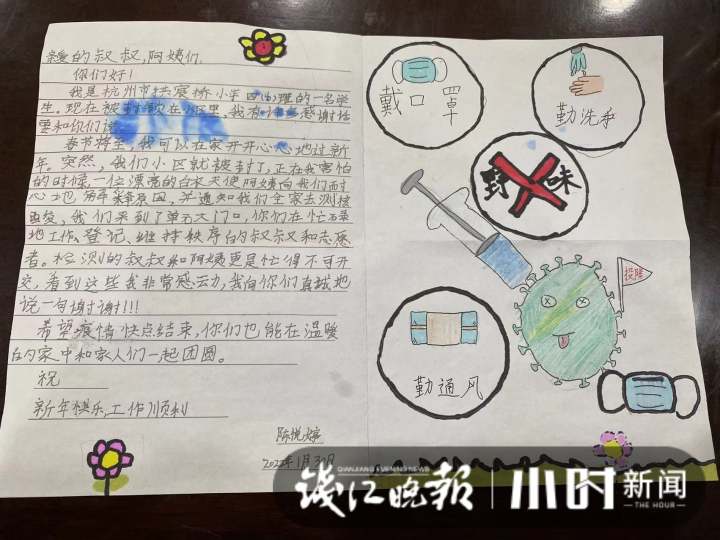 亲爱的叔叔，阿姨们：
你们好！
我是杭州市拱宸桥小学四
的一名学
生。现在被封锁在小区里，我有
感谢话
要和你们说。
春节将至，我可以在家开开心心地过新
年。突然，我们小区就被封了，正在我害怕
的时候，一位漂亮的白衣天使阿姨向我们耐
心地解释原因，并通知我们全家去测核
酸，我们来到了单元大门口，你们在忙碌
地工作。登记、维持秩序的叔叔和志愿
者。检测的叔叔和阿姨更是忙得不可开
交，看到这些我非常感动，我向你们真诚地
说一句谢谢!!!
希望疫情快点结束，你们也能在温暖
的家中和家人们一起团圆。
祝
新年快乐，工作顺利
陈悦婷
2022年1月30日
戴口罩
勤洗手
野味
投降
勤通风
QIANJIANG EVENING NEWS
钱江晚报
小时新闻
THE HOUR